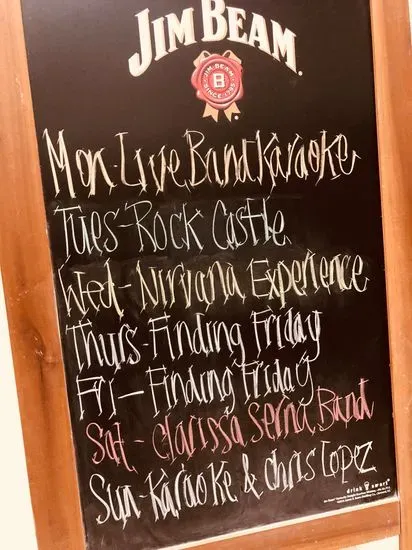 JIM BEAM
JIM BEAM
B
SINCE 1795
Mon-Live Band Karaoke
Tues-Rock Castle
Wed-Nirvana Experience
Thurs-Finding Friday
Fri-Finding Friday
Sat-Clarissa Serna Band
Sun-Karaoke & Chris Lopez
drink smart